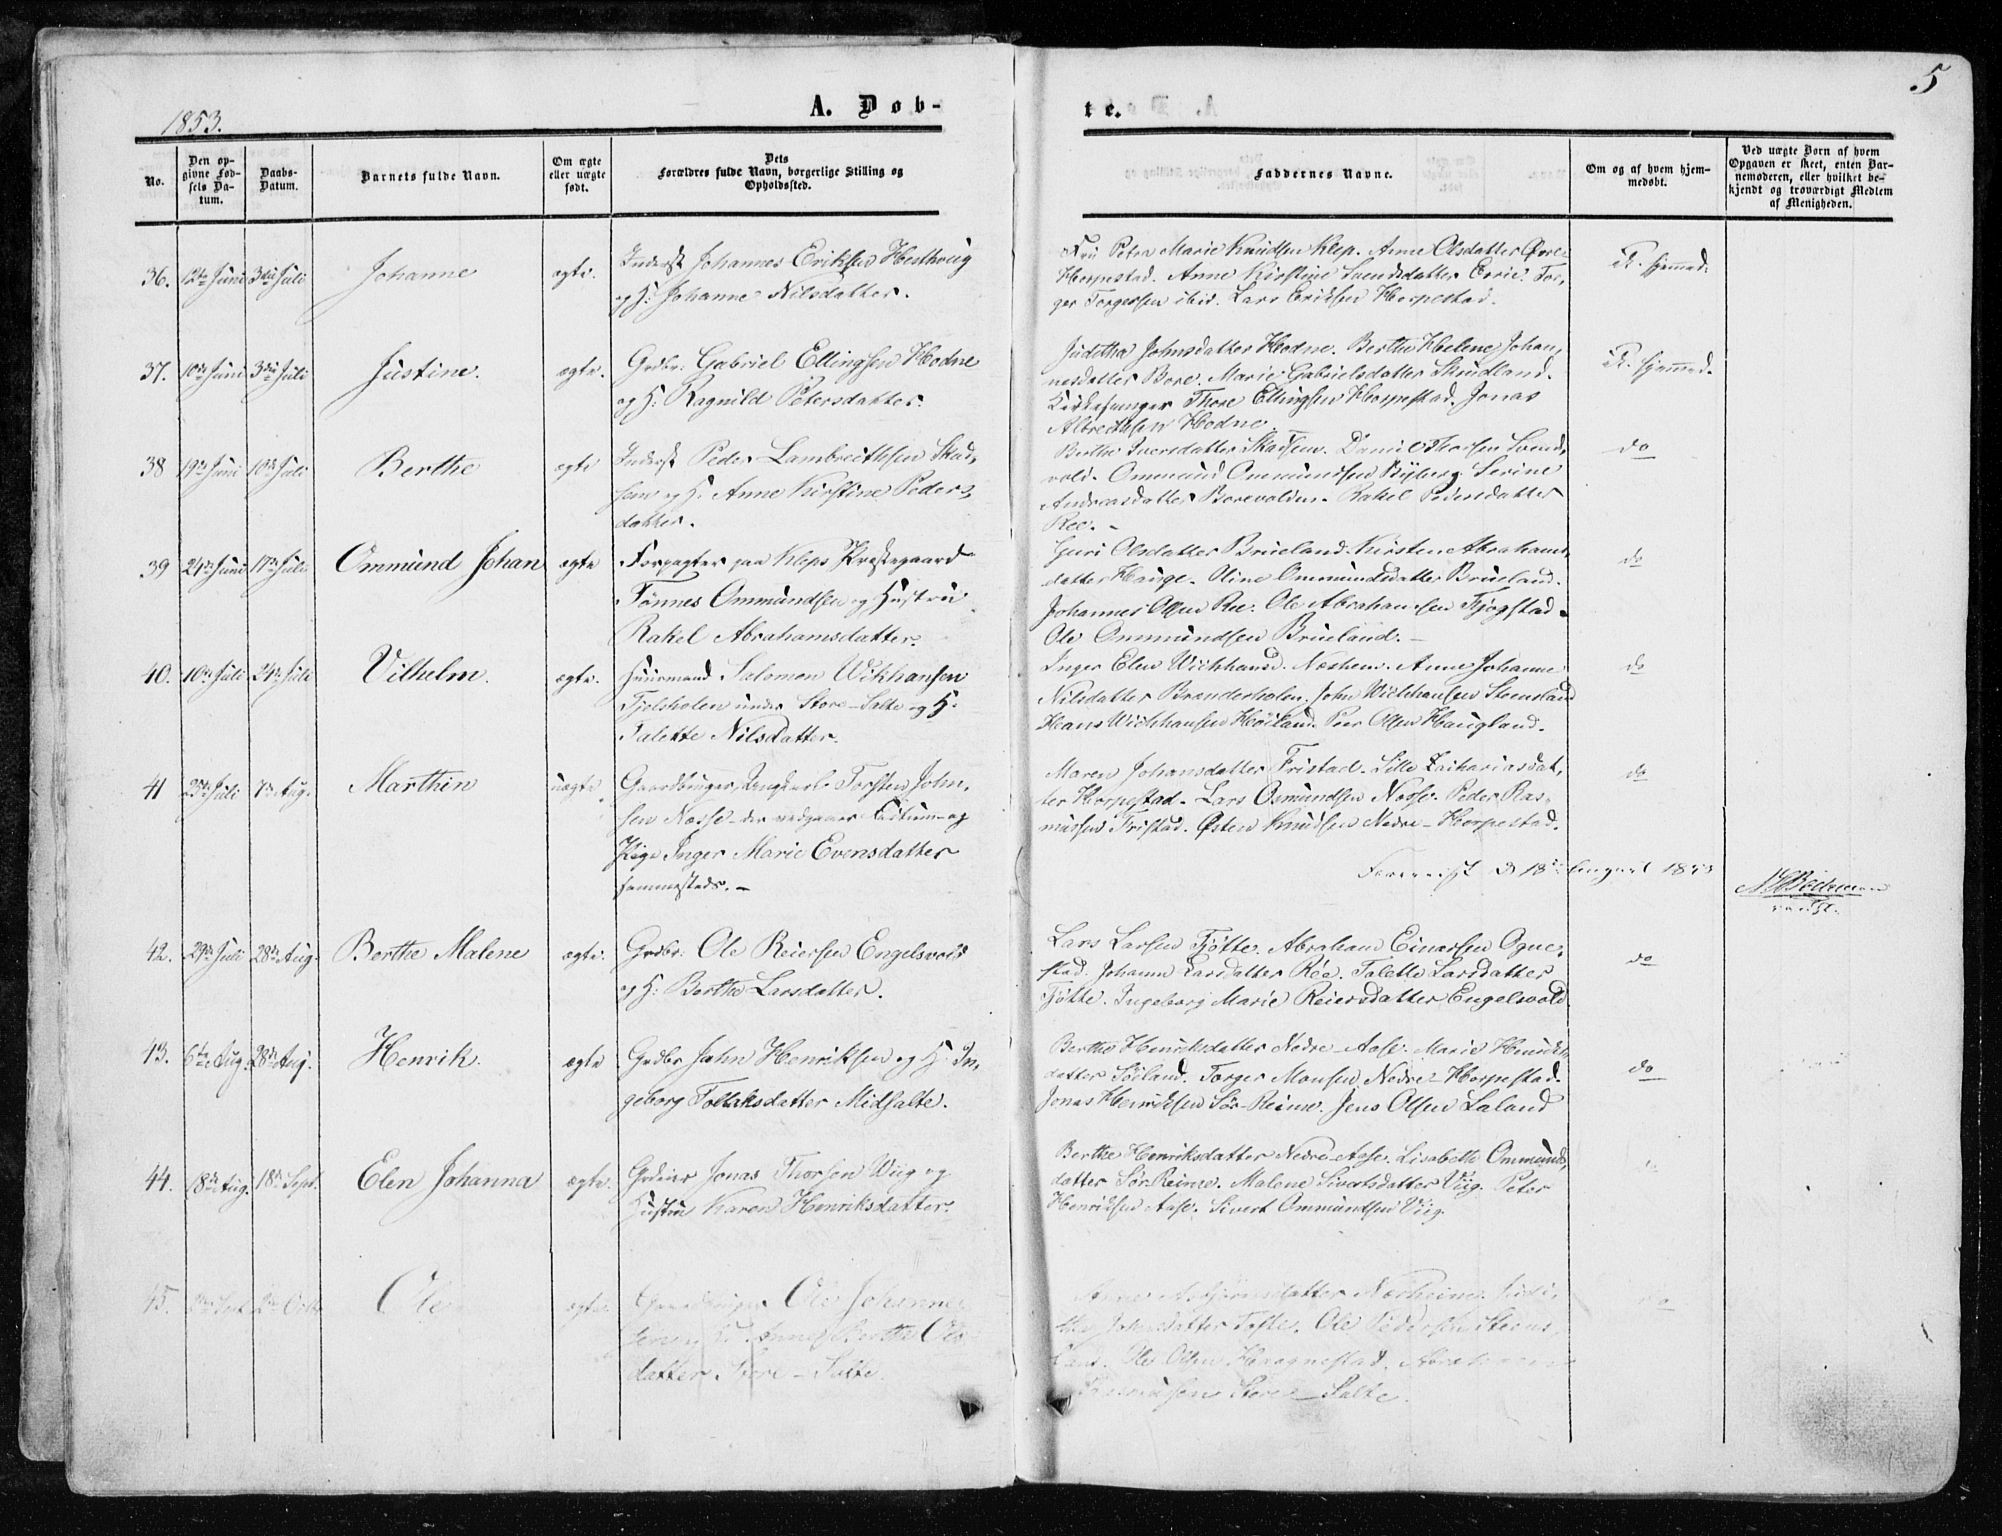 5
1853.
A. Døb-
te.
No.
Den op-
givne Fød-
sels Da-
tum.
Daabs-
Datum.
Barnets fulde Navn.
Om ægte
eller uægte
født.
Dets
Forældres fulde Navn, borgerlige Stilling og
Opholdssted.
Faddernes Navne.
Om og af hvem hjem-
medøbt.
Ved uægte Børn af hvem
Opgaven er skeet, enten Bar-
nemoderen, eller hvilket be-
kjendt og troværdigt Medlem
af Menigheden.
36. 12te Juni 3die Juli Johanne ægte. Inderst Johannes Eriksen
og H: Johanne Nilsdatter.
Fru Petra Marie Knudsen Klep. Anne Olsdatter Øvre
Horpestad. Anne Kirstine Svendsdatter Ervie. Tor-
ger Torgersen ibid. Lars Eriksen Horpestad.
hjemmed.
37. 10de Juni 3die Juli Justine. ægte. Grdbr: Gabriel Ellingsen Hodne
og H: Ragnild Petersdatter.
Juditha Johnsdatter Hodne. Berthe Helene Johan-
nesdatter Bore. Marie Gabrielsdatter Skudland.
Kirkesanger Thore Ellingsen Horpestad. Jonas
Albrethsen Hodne.
hjemmed.
38 19de Juni 10de Juli Berthe ægte Inderst Peder Lambrecthsen Skad-
sem og H: Anne Kirstine Peders-
datter.
Berthe Iversdatter Skadsem. Daniel Thorsen
vold. Ommund Ommundsen Byberg. Serine
Andreasdatter Borevolden. Rakel Pedersdatter
Ree.
do
39 24de Juni 17de Juli Ommund Johan ægte Forpagter paa Kleps Præstegaard
Tønnes Ommundsen og Hustru
Rakel Abrahamsdatter.
Guri Olsdatter Brueland. Kirsten Abrahams-
datter Hauge. Oline Ommundsdatter Brueland.
Johannes Olsen Ree. Ole Abrahamsen Tjogstad.
Ole Ommundsen Brueland.
do
40. 10de Juli 24de Juli Vilhelm. ægte. Huusmand Salomon Wikhansen
Tjelsholen under Store-Salte og H:
Talette Nilsdatter.
Inger Elen Wichhansd. Næsheim. Anne Johanne
Nilsdatter Brønderholen. John Wichhansen Steensland
Hans Wichhansen Høiland. Peer Olsen Haugland.
do
41 25de Juli 7de Aug. Marthin uægte Gaardbruger, Ungkarl Torsten John-
sen Nosse
Pige Inger Marie Evensdatter
sammesteds.
Maren Johansdatter Fristad. Sille Zachariasdat-
ter Horpestad. Lars Osmundsen Nosse. Peder Ras-
mussen Fristad. Østen Knudsen Nedre-Horpestad.
do
Forevist d 18de August 1853
42. 29de Juli 28de Aug. Berthe Malene ægte. Grdbr: Ole Reiersen Engelsvold
og H: Berthe Larsdatter.
Lars Larsen Tjøtte. Abraham Einarsen Ogne-
stad. Johanne Larsdatter Ree. Talette Larsdatter
Tjøtte. Ingeborg Marie Reiersdatter Engelsvold.
do
43. 6te Aug. 28de Aug. Henrik. ægte Grdbr John Henriksen og H: In-
geborg Tollaksdatter Midsalte.
Berthe Henriksdatter Nedre-Aase. Marie Henriks-
datter Søiland. Torger Monsen Nedre-Horpestad.
Jonas Henriksen Sør-Reime. Jens Olsen Laland
do
44. 18de Aug. 18de Sept. Elen Johanna ægte. Grdeier Jonas Thorsen Wiig og
Hustru Karen Henriksdatter.
Berthe Henriksdatter Nedre-Aase. Lisabeth Ommunds-
datter Sør-Reime. Malene Sivertsdatter Viig. Peter
Henriksen Aase. Sivert Ommundsen Viig.
45. Ole ægte. Gaardbruger Ole Johanne-
Anne Berthe Ols-
datter Store-Salte.
Anne
Tofte. Ole Pedersen Steens-
land. Ole Olsen
Store-Salte.
do